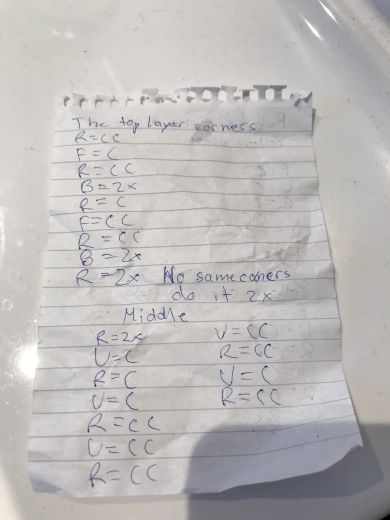 The top layer corners
R=CC
F=C
R=CC
B=2x
R=C
F=CC
R=CC
B=2x
R=2x No same corners
do it 2x
Middle
R=2x
U=C
R=C
U=C
R=CC
U=CC
R=CC
U=CC
R=CC
U=C
R=CC